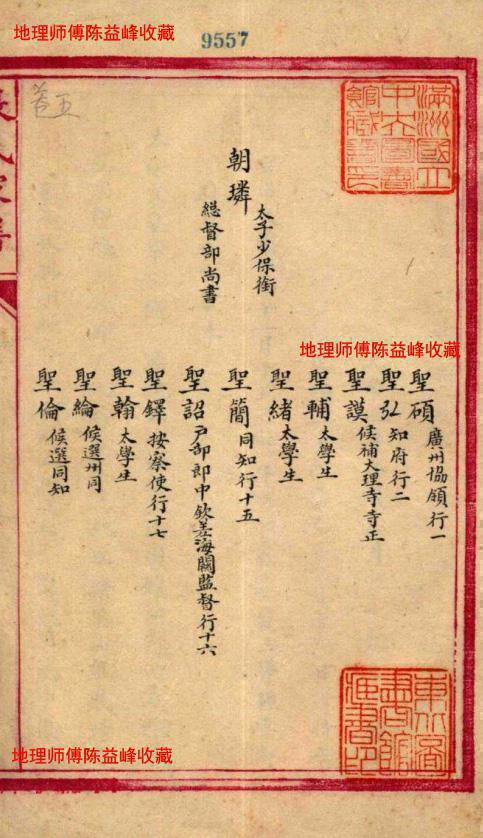 地理师傅陈益峰收藏
9557
卷五
滿洲國立中央圖書館籌備處之印
朝璘
太子少保銜
總督部尚書
地理师傅陈益峰收藏
聖碩 廣州協領行一
聖弘 知府行二
聖謨 候補大理寺寺正
聖輔 太學生
聖緒 太學生
聖簡 同知行十五
聖詔 户部郎中欽差海關監督行十六
聖鐸 按察使行十七
聖翰 太學生
聖綸 候選州同
聖倫 候選同知
東北圖書館藏書印
地理师傅陈益峰收藏